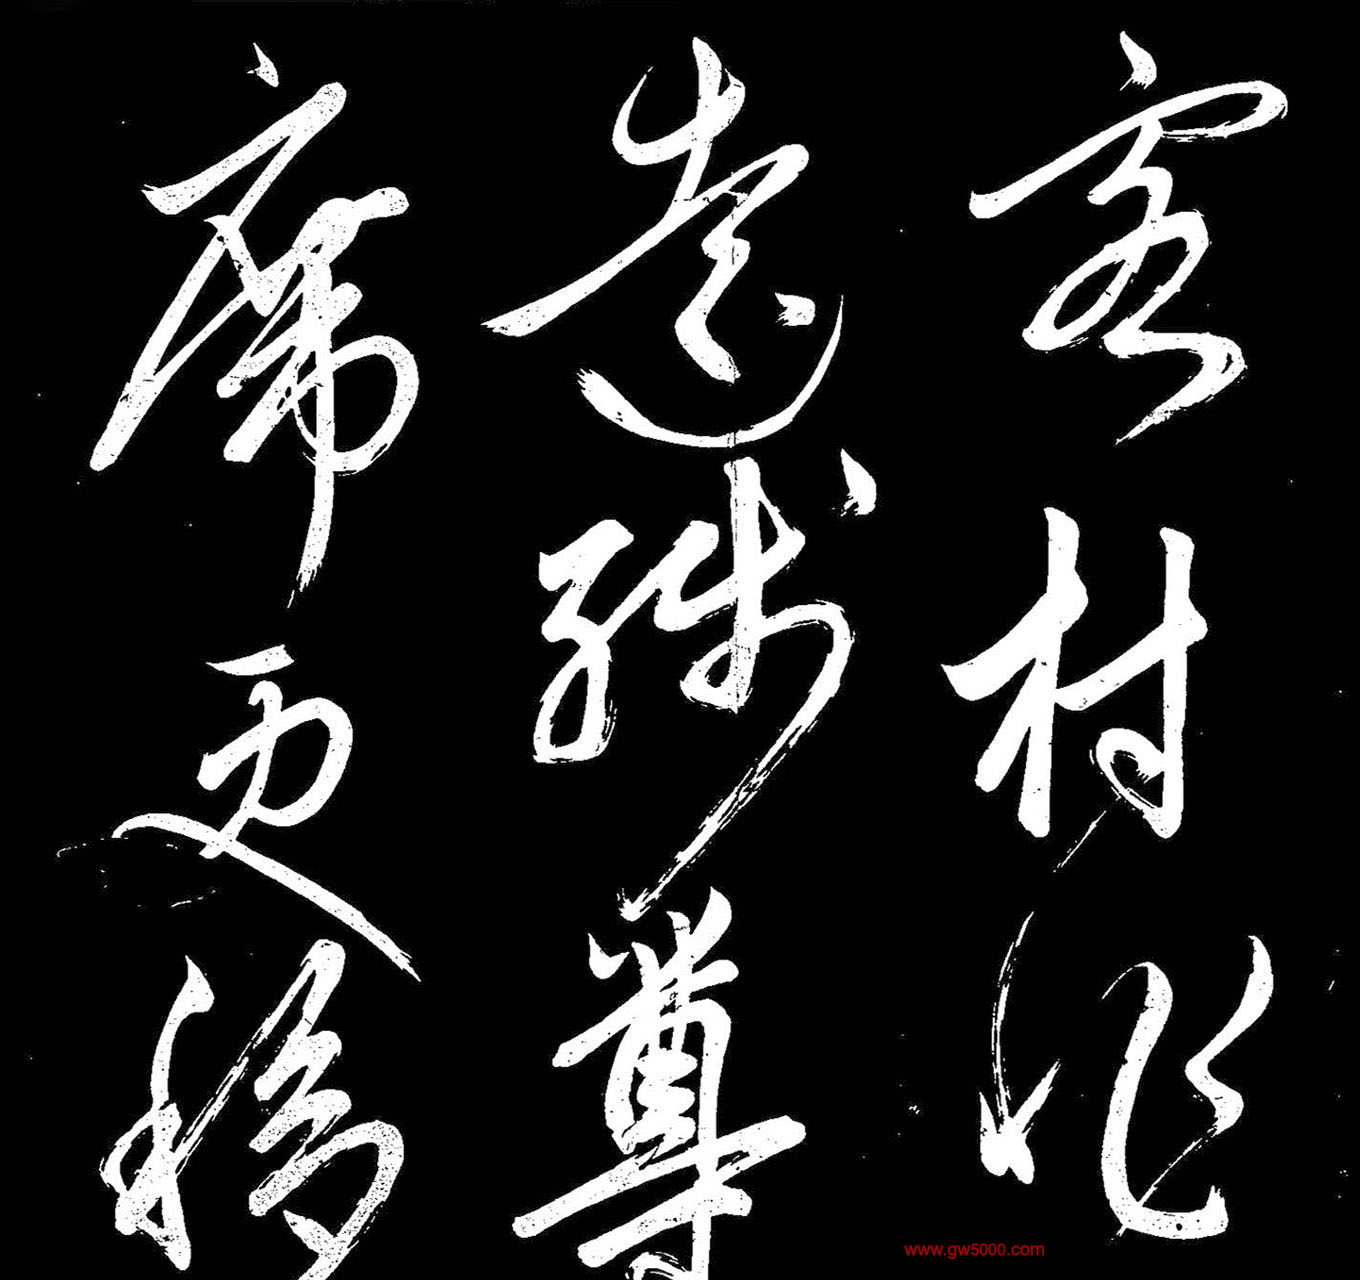 客村非
远残尊
席更移
www.gw5000.com